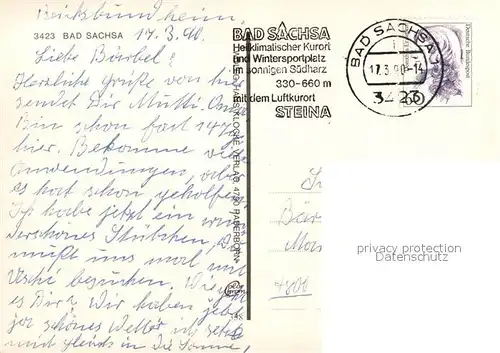 Reichsbundheim,
3423 BAD SACHSA 17.3.90.
Liebe Bärbel!
Herzliche Grüße von hier
sendet Dir Mutti. Oma
Bin schon fast 14 T
hier. Bekomme viel
Anwendungen, aber
es hat schon geholfen.
Ich habe jetzt ein wun
derschönes Stübchen, Du
mußt uns mal mit
Uschi besuchen. Wie geht
es Dir? Wir haben jetzt
so schönes Wetter, ich setze
mich gleich in die Sonne,
BAD SACHSA
Heilklimatischer Kurort
und Wintersportplatz
im sonnigen Südharz
330-660 m
mit dem Luftkurort
STEINA
BAD SACHSA 1
17.3.90-14
3423
Deutsche Bundespost
60
KLOCKE VERLAG, 4790 PADERBORN
Bär
4800
privacy protection
Datenschutz